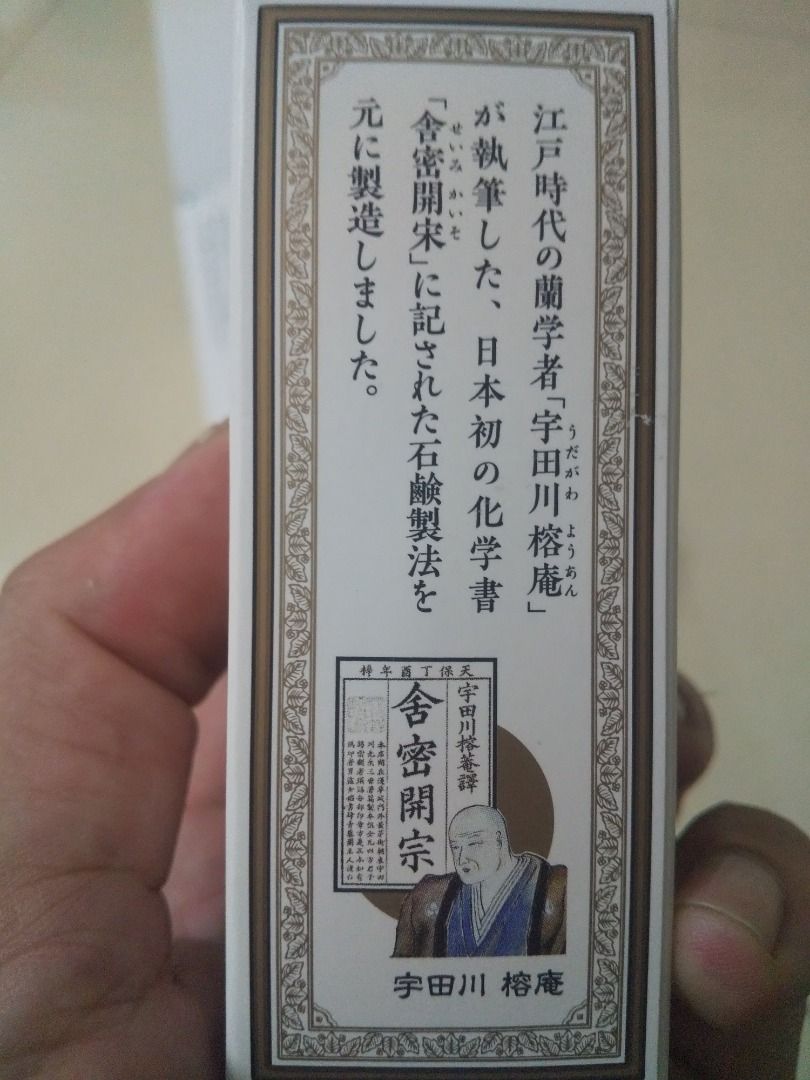 江戸時代の蘭学者「宇田川榕庵」
うだがわ ようあん
が執筆した、日本初の化学書
「舎密開宋」に記された石鹸製法を
せいみ かいそ
元に製造しました。
天保丁酉年梓
宇田川榕菴譯
舎密開宗
宇田川 榕庵